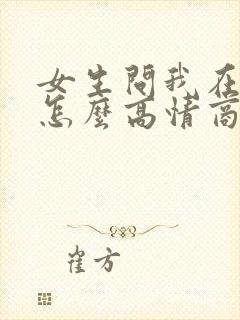 女生問我在
怎麼高情商
崔方